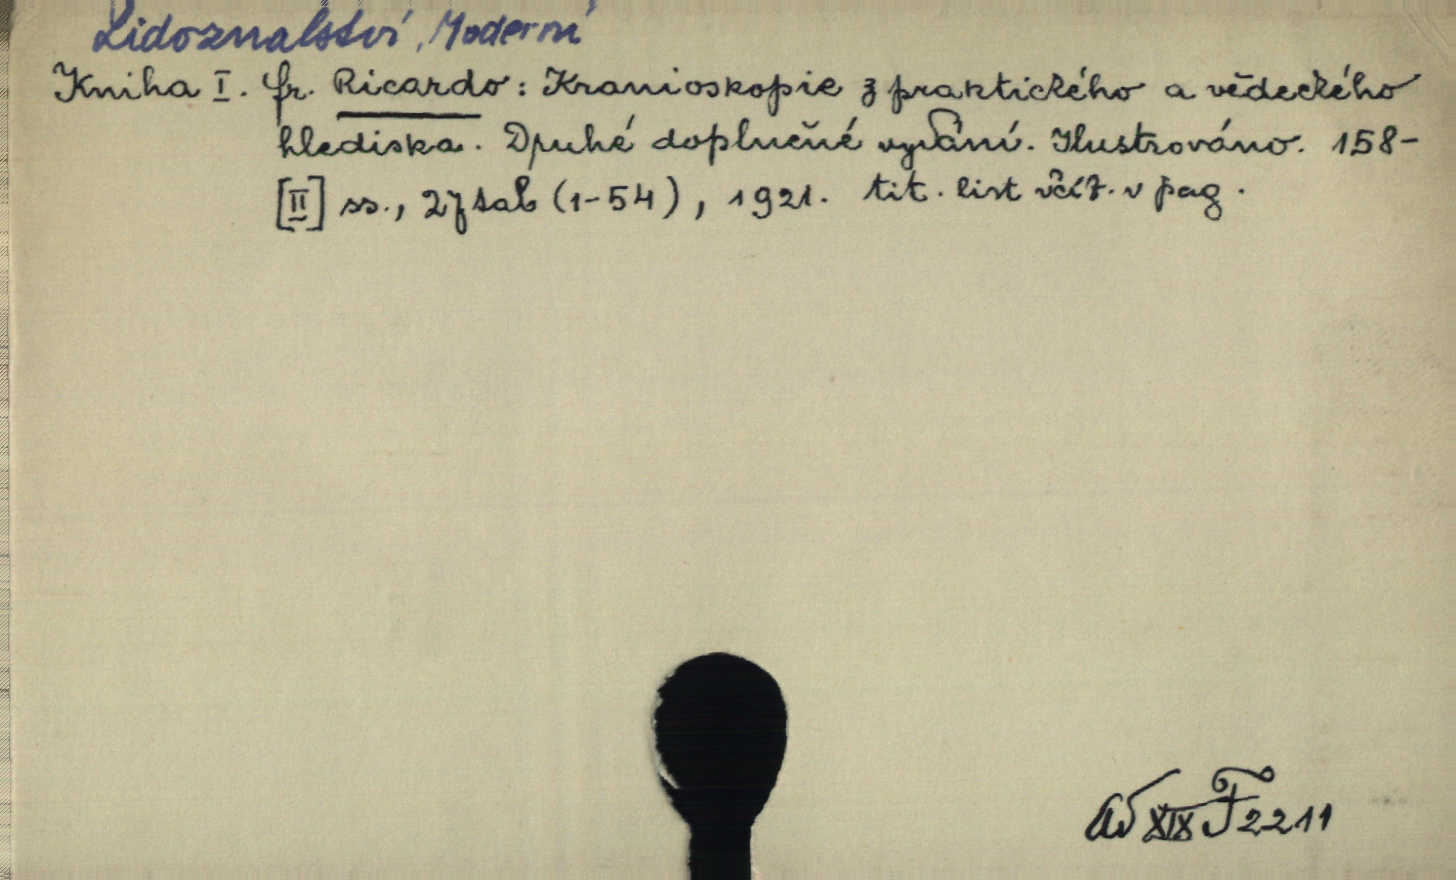 Lidoznalství, Moderní
Kniha I. Fr. Ricardo: Kranioskopie z praktického a vědeckého
hlediska. Druhé doplněné vydání. Ilustrováno. 158-
[II] ss., 27 tab (1-54), 1921. tit. list včít. v pag.
Ad XIX F 2211